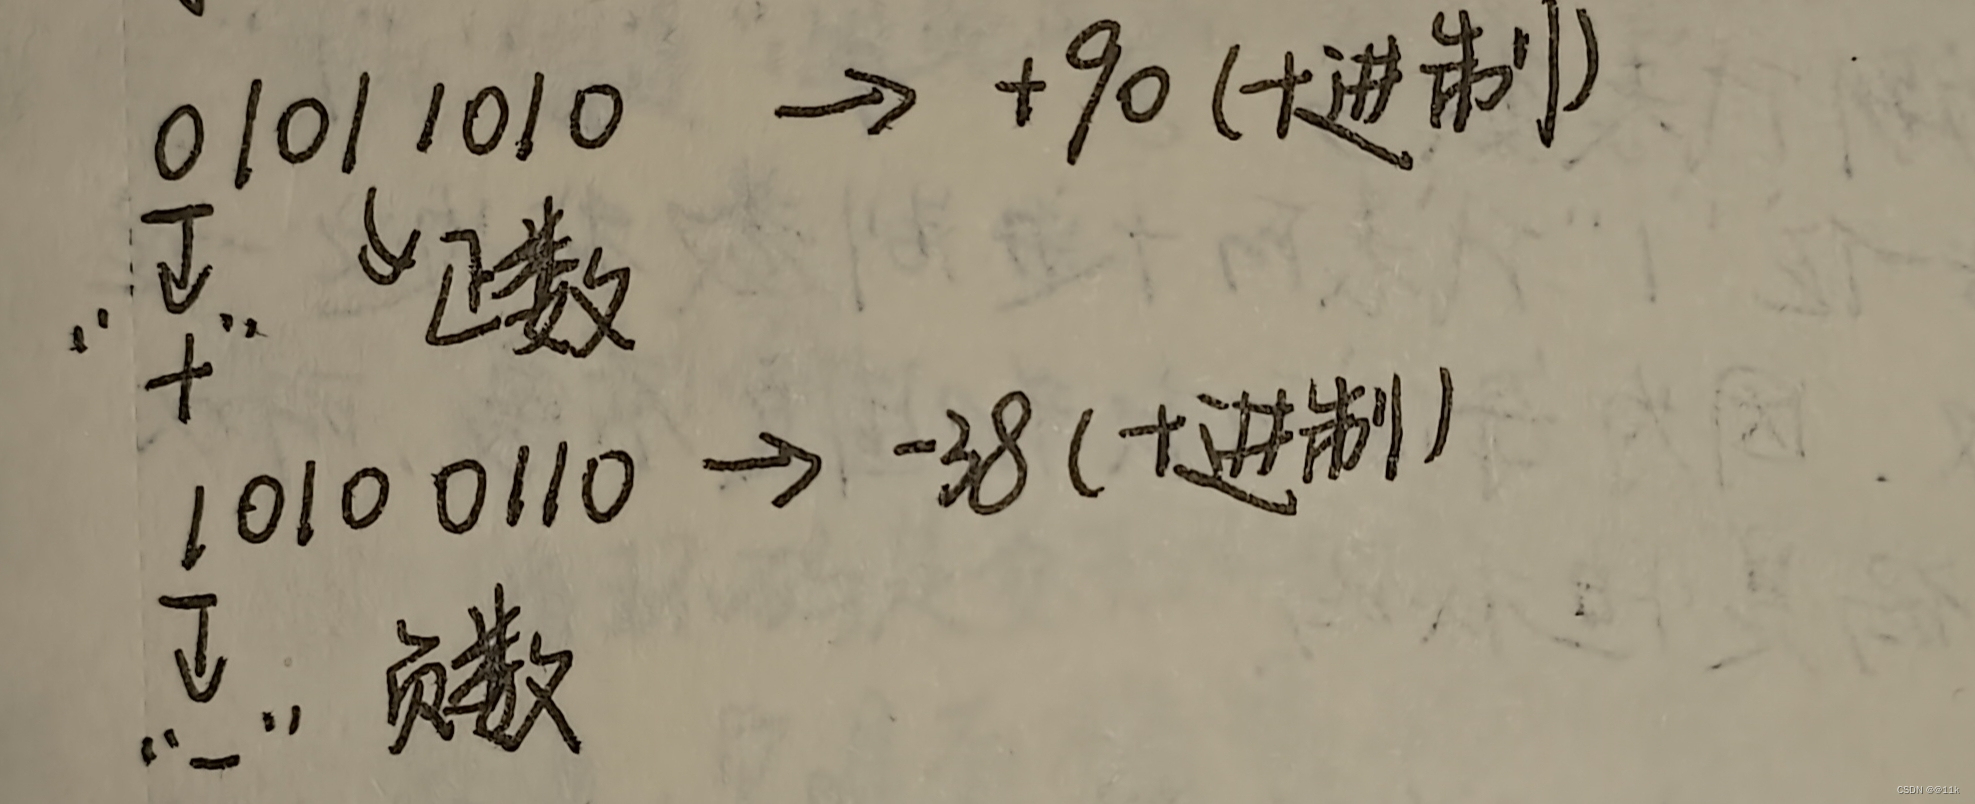 0101 1010 → +90 (十进制)
↓ ↘ 正数
"+"
1010 0110 → -38 (十进制)
↓
"-" 负数
CSDN @@11k